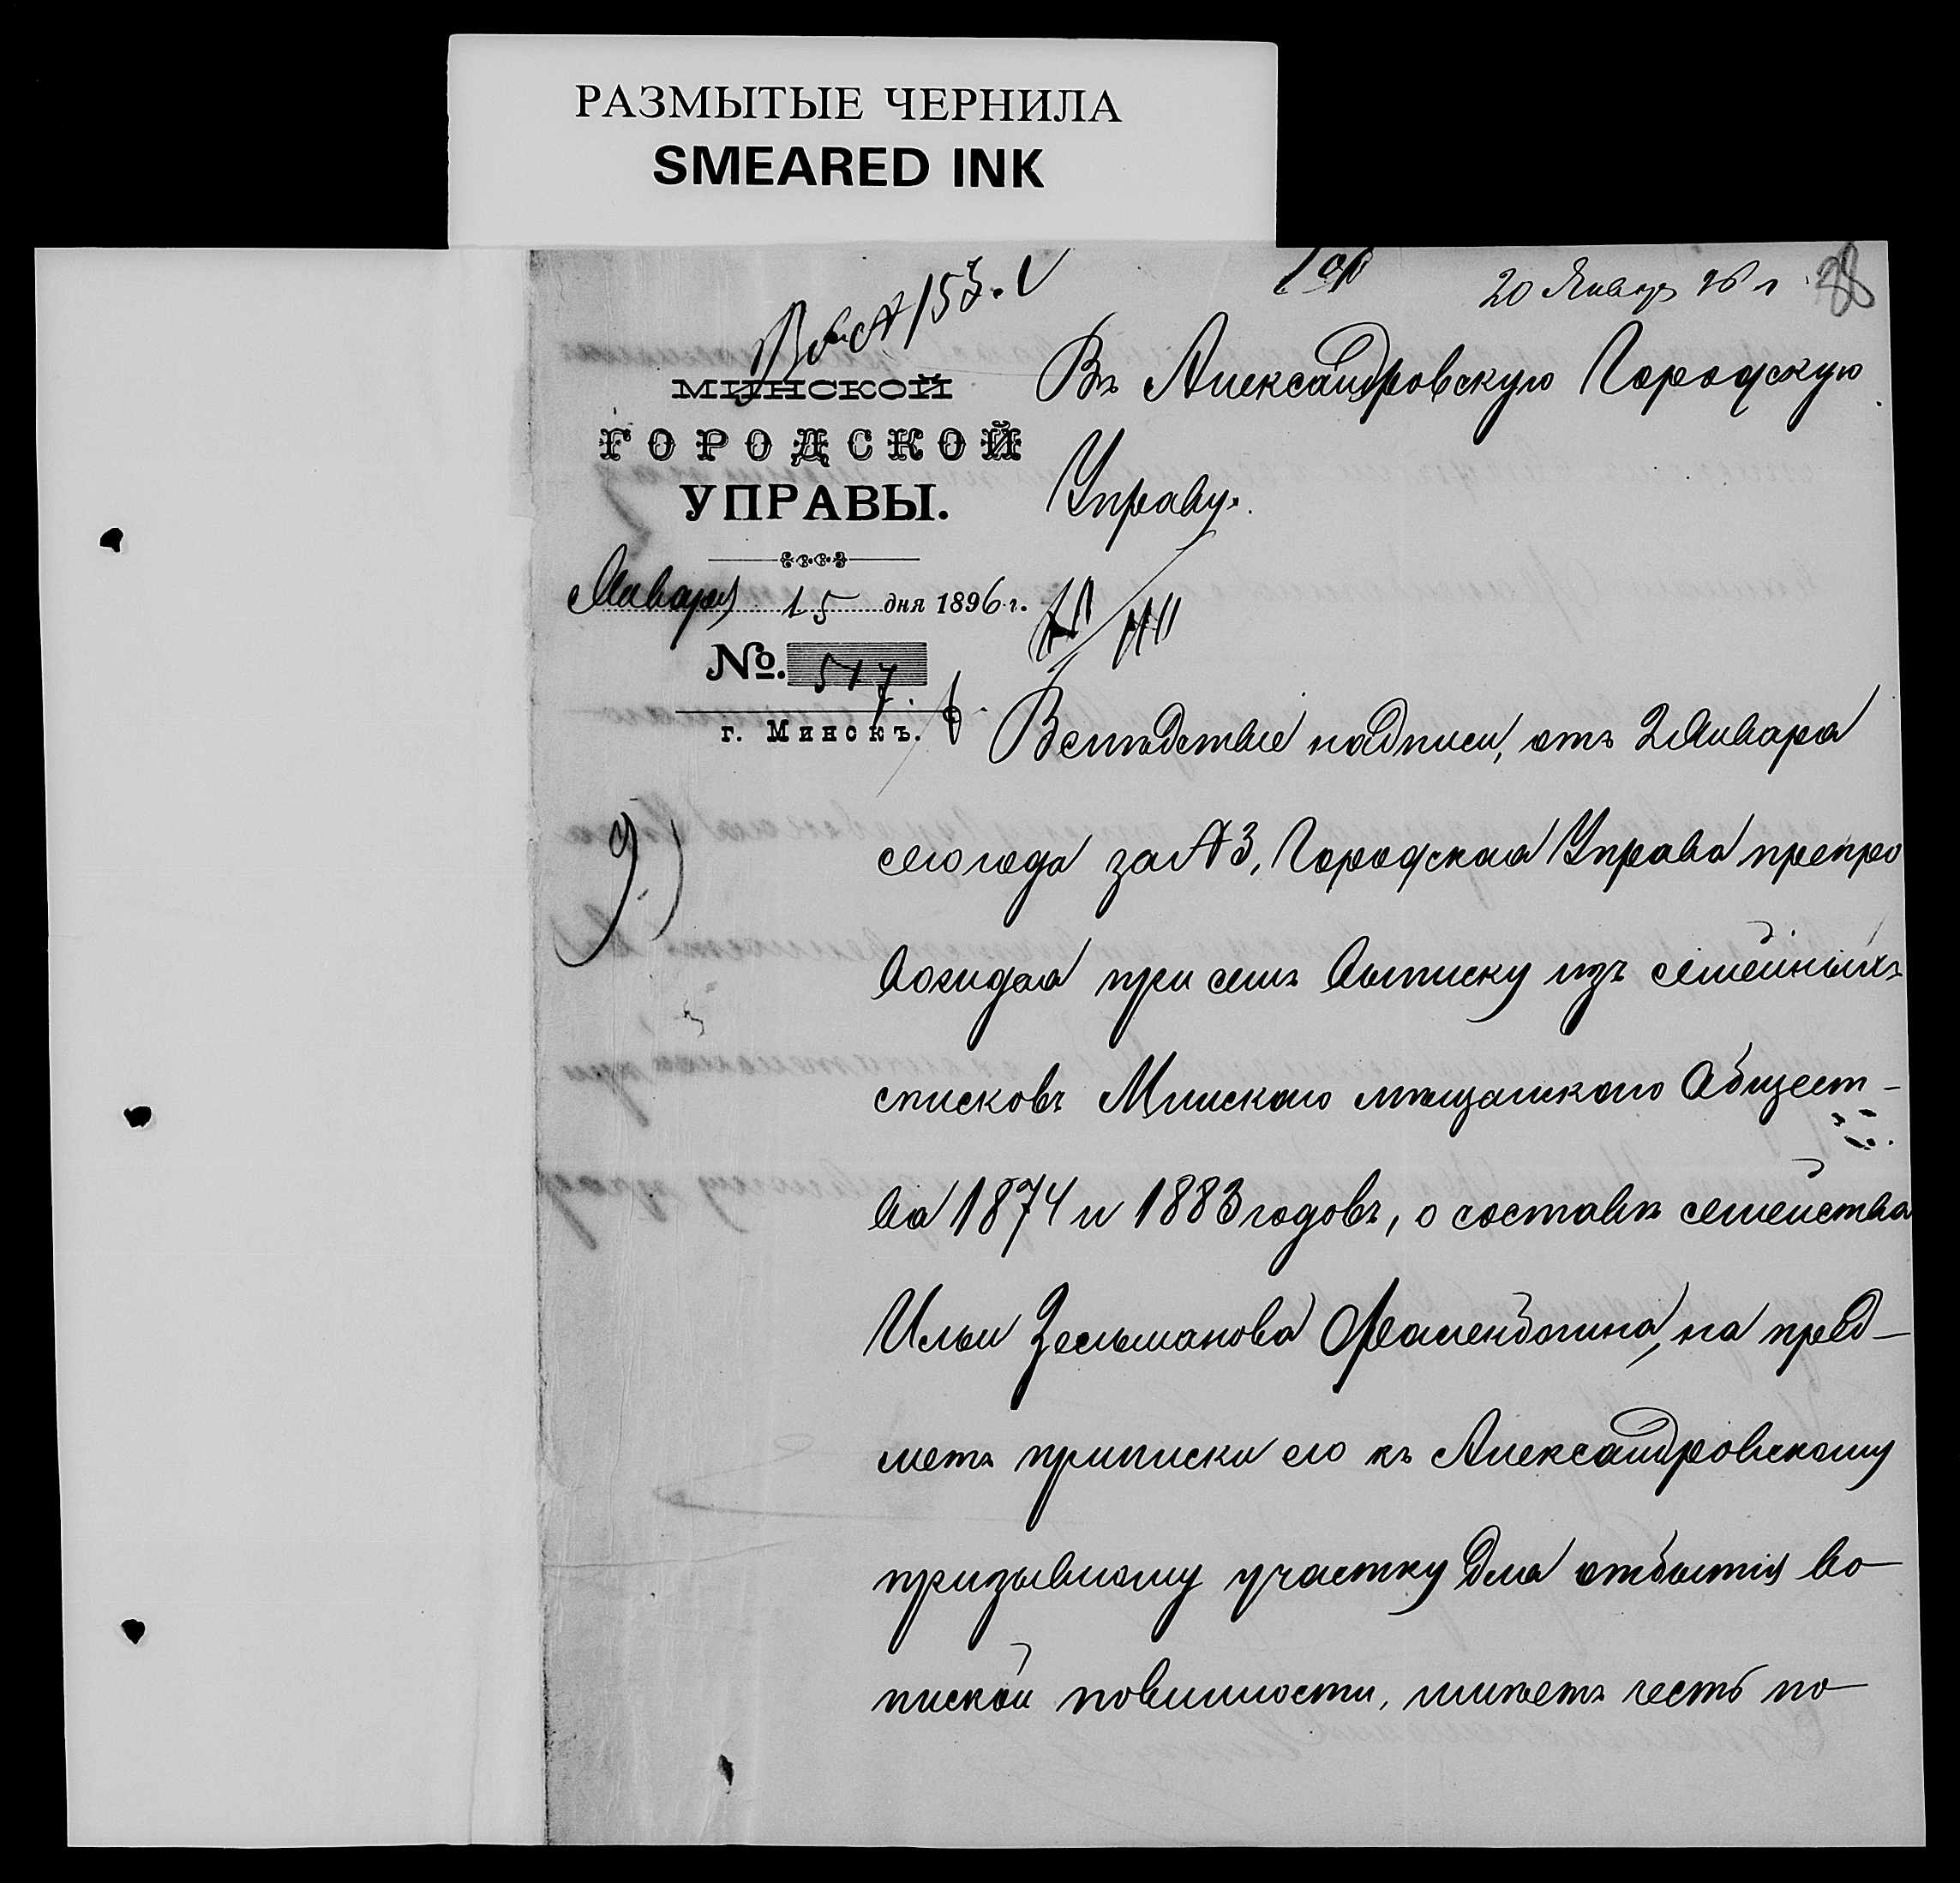 РАЗМЫТЫЕ ЧЕРНИЛА
SMEARED INK
20 Январ 96 г 38
Вх. № 153.
МИНСКОЙ
ГОРОДСКОЙ
УПРАВЫ.
Января 15 дня 1896 г.
№. 517
г. Минскъ.
Въ Александровскую Городскую
Управу.
Вслѣдствіе надписи, отъ 2 Января
сего года за № 3, Городская Управа препро
вождая при семъ выписку изъ семейныхъ
списковъ Минскаго мѣщанскаго Общест-
ва 1874 и 1883 годовъ, о составѣ семейства
Ильи Зельманова на пред-
метъ приписки его къ Александровскому
призывному участку для отбытія во-
инской повинности, имѣетъ честь по-
9)